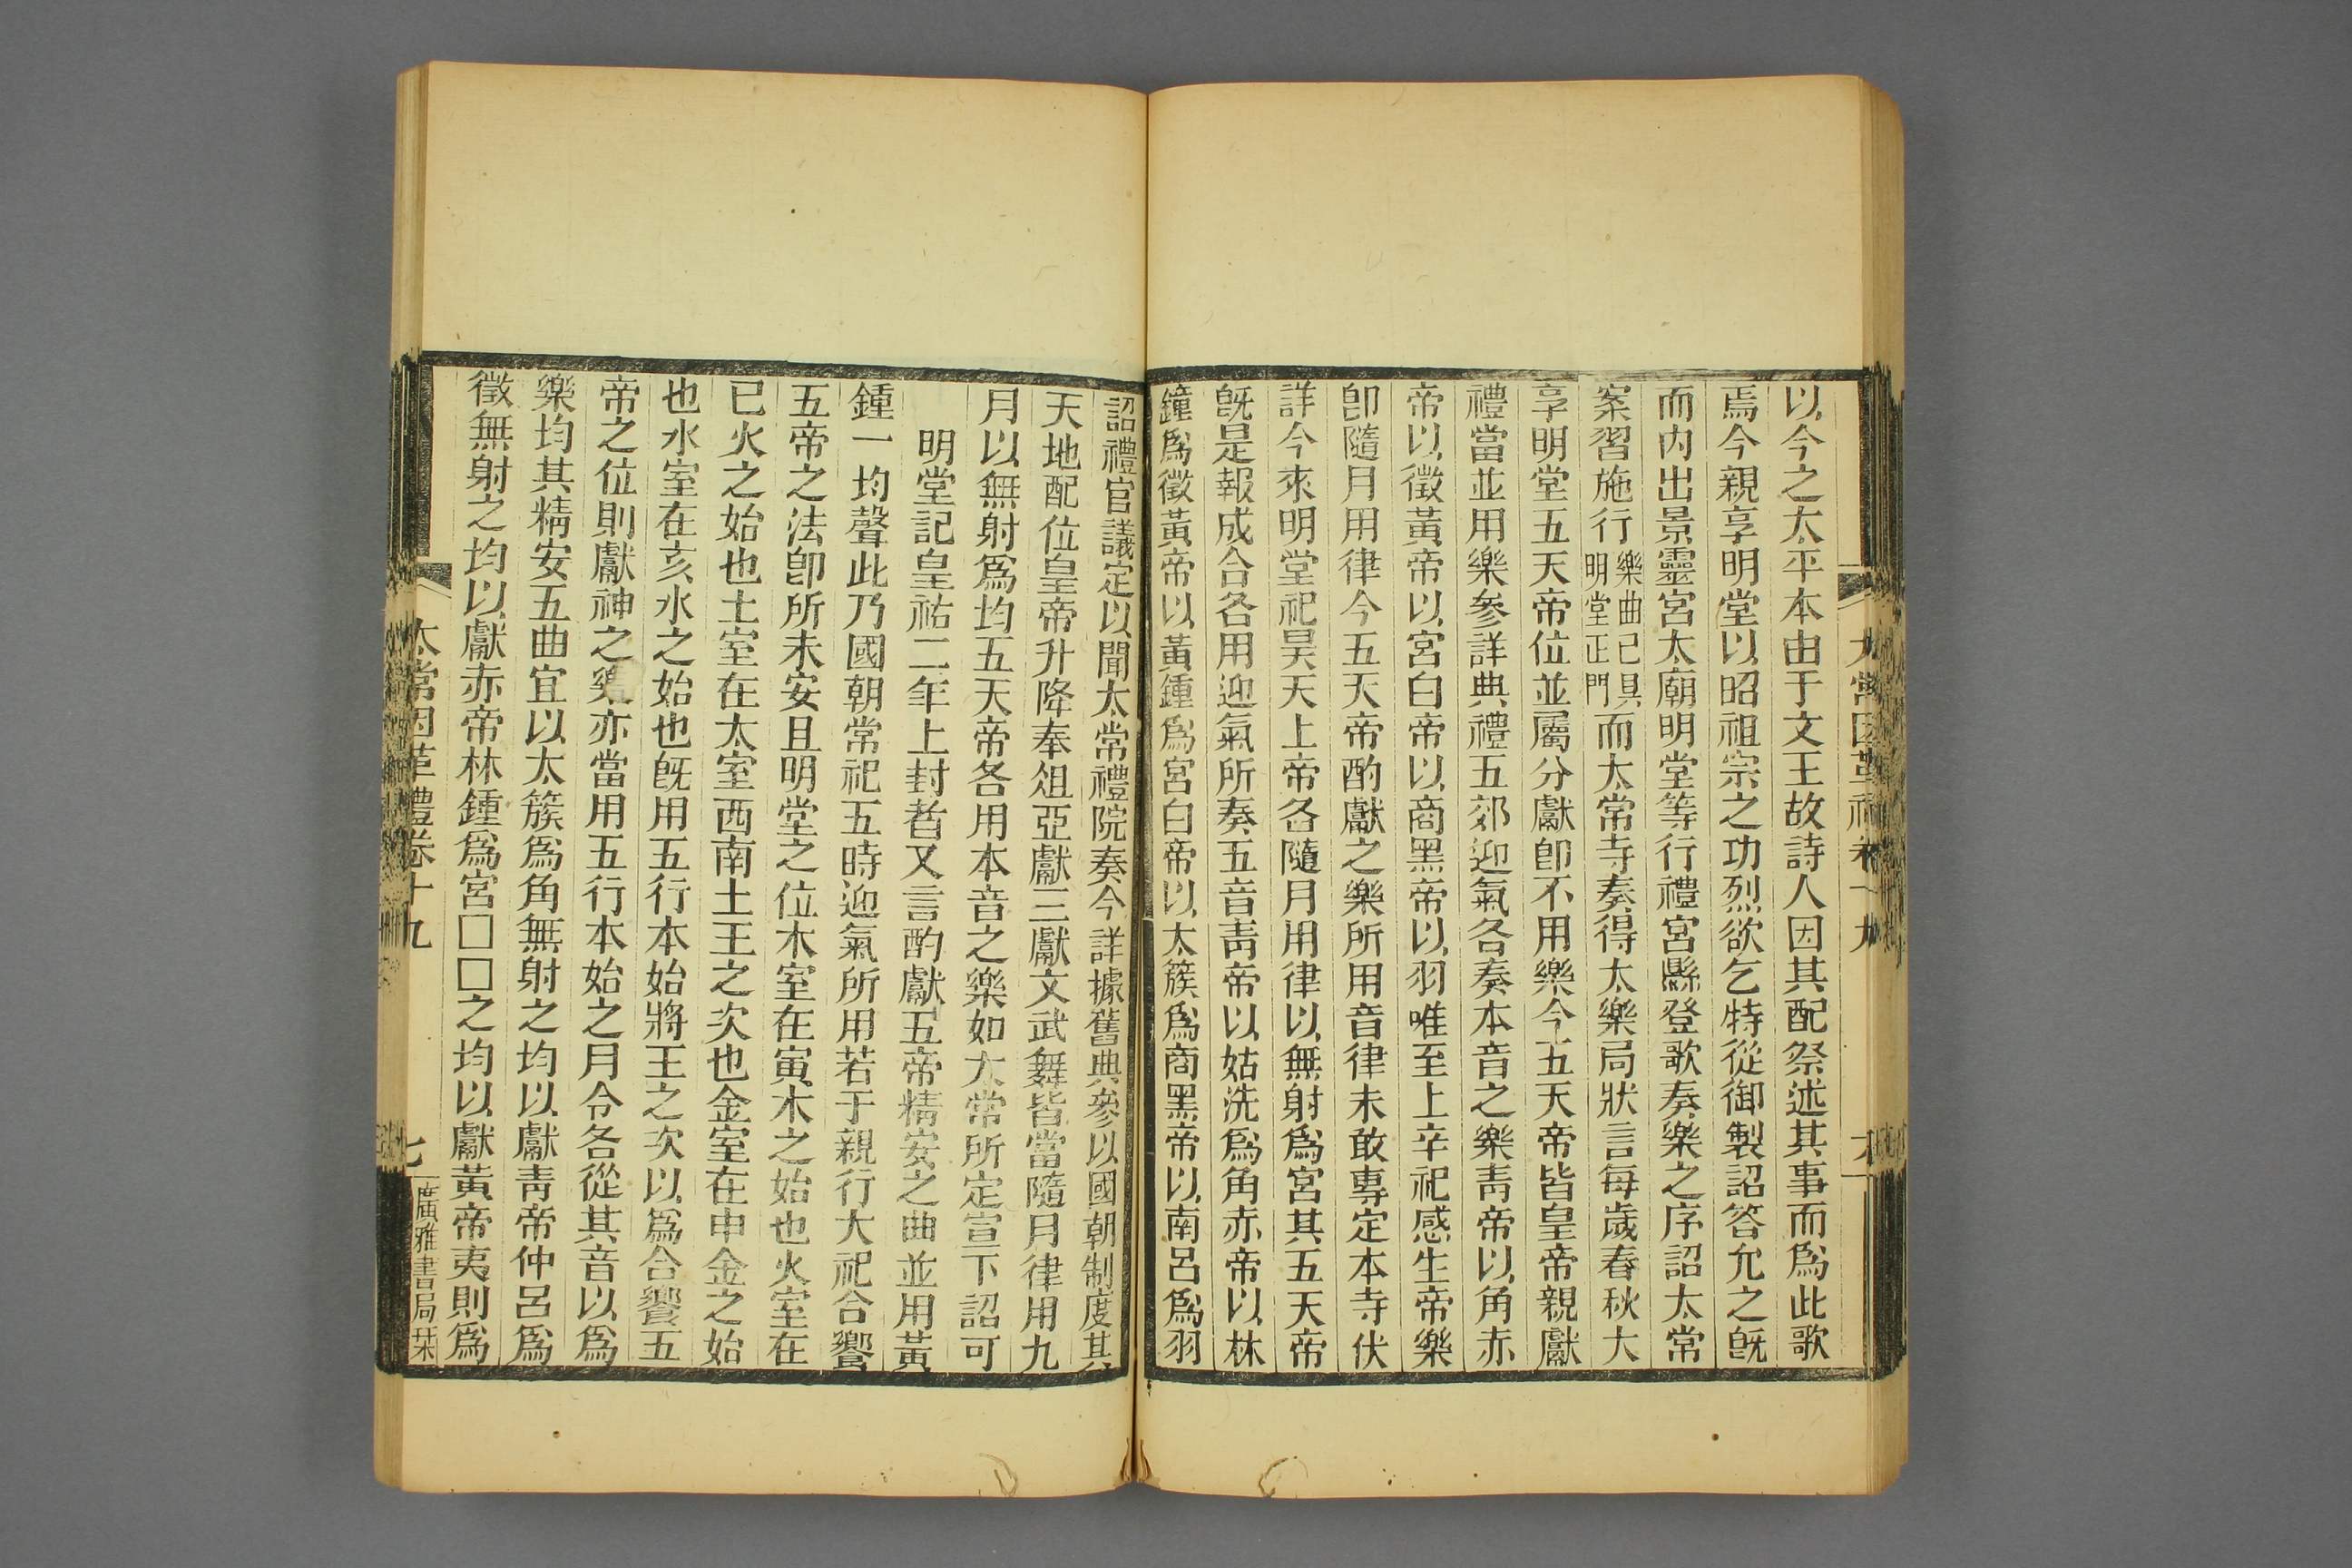 以今之太平本由于文王故詩人因其配祭述其事而爲此歌
焉今親享明堂以昭祖宗之功烈欲乞特從御製詔答允之旣
而内出景靈宮太廟明堂等行禮宮縣登歌奏樂之序詔太常
案習施行樂曲已具明堂正門而太常寺奏得太樂局狀言每歲春秋大
享明堂五天帝位並屬分獻卽不用樂今五天帝皆皇帝親獻
禮當並用樂參詳典禮五郊迎氣各奏本音之樂靑帝以角赤
帝以徵黃帝以宮白帝以商黑帝以羽唯至上辛祀感生帝樂
卽隨月用律今五天帝酌獻之樂所用音律未敢專定本寺伏
詳今來明堂祀昊天上帝各隨月用律以無射爲宮其五天帝
旣是報成合各用迎氣所奏五音靑帝以姑洗爲角赤帝以林
鐘爲徵黃帝以黃鍾爲宮白帝以太簇爲商黑帝以南呂爲羽
詔禮官議定以聞太常禮院奏今詳據舊典參以國朝制度其
天地配位皇帝升降奉俎亞獻三獻文武舞皆當隨月律用九
月以無射爲均五天帝各用本音之樂如太常所定宣下詔可
明堂記皇祐二年上封者又言酌獻五帝精安之曲並用黃
鍾一均聲此乃國朝常祀五時迎氣所用若于親行大祀合饗
五帝之法卽所未安且明堂之位木室在寅木之始也火室在
巳火之始也土室在太室西南土王之次也金室在申金之始
也水室在亥水之始也旣用五行本始將王之次以爲合饗五
帝之位則獻神之樂亦當用五行本始之月令各從其音以爲
樂均其精安五曲宜以太簇爲角無射之均以獻靑帝仲呂爲
徵無射之均以獻赤帝林鍾爲宮□□之均以獻黃帝夷則爲
太常因革禮卷十九
七
廣雅書局栞